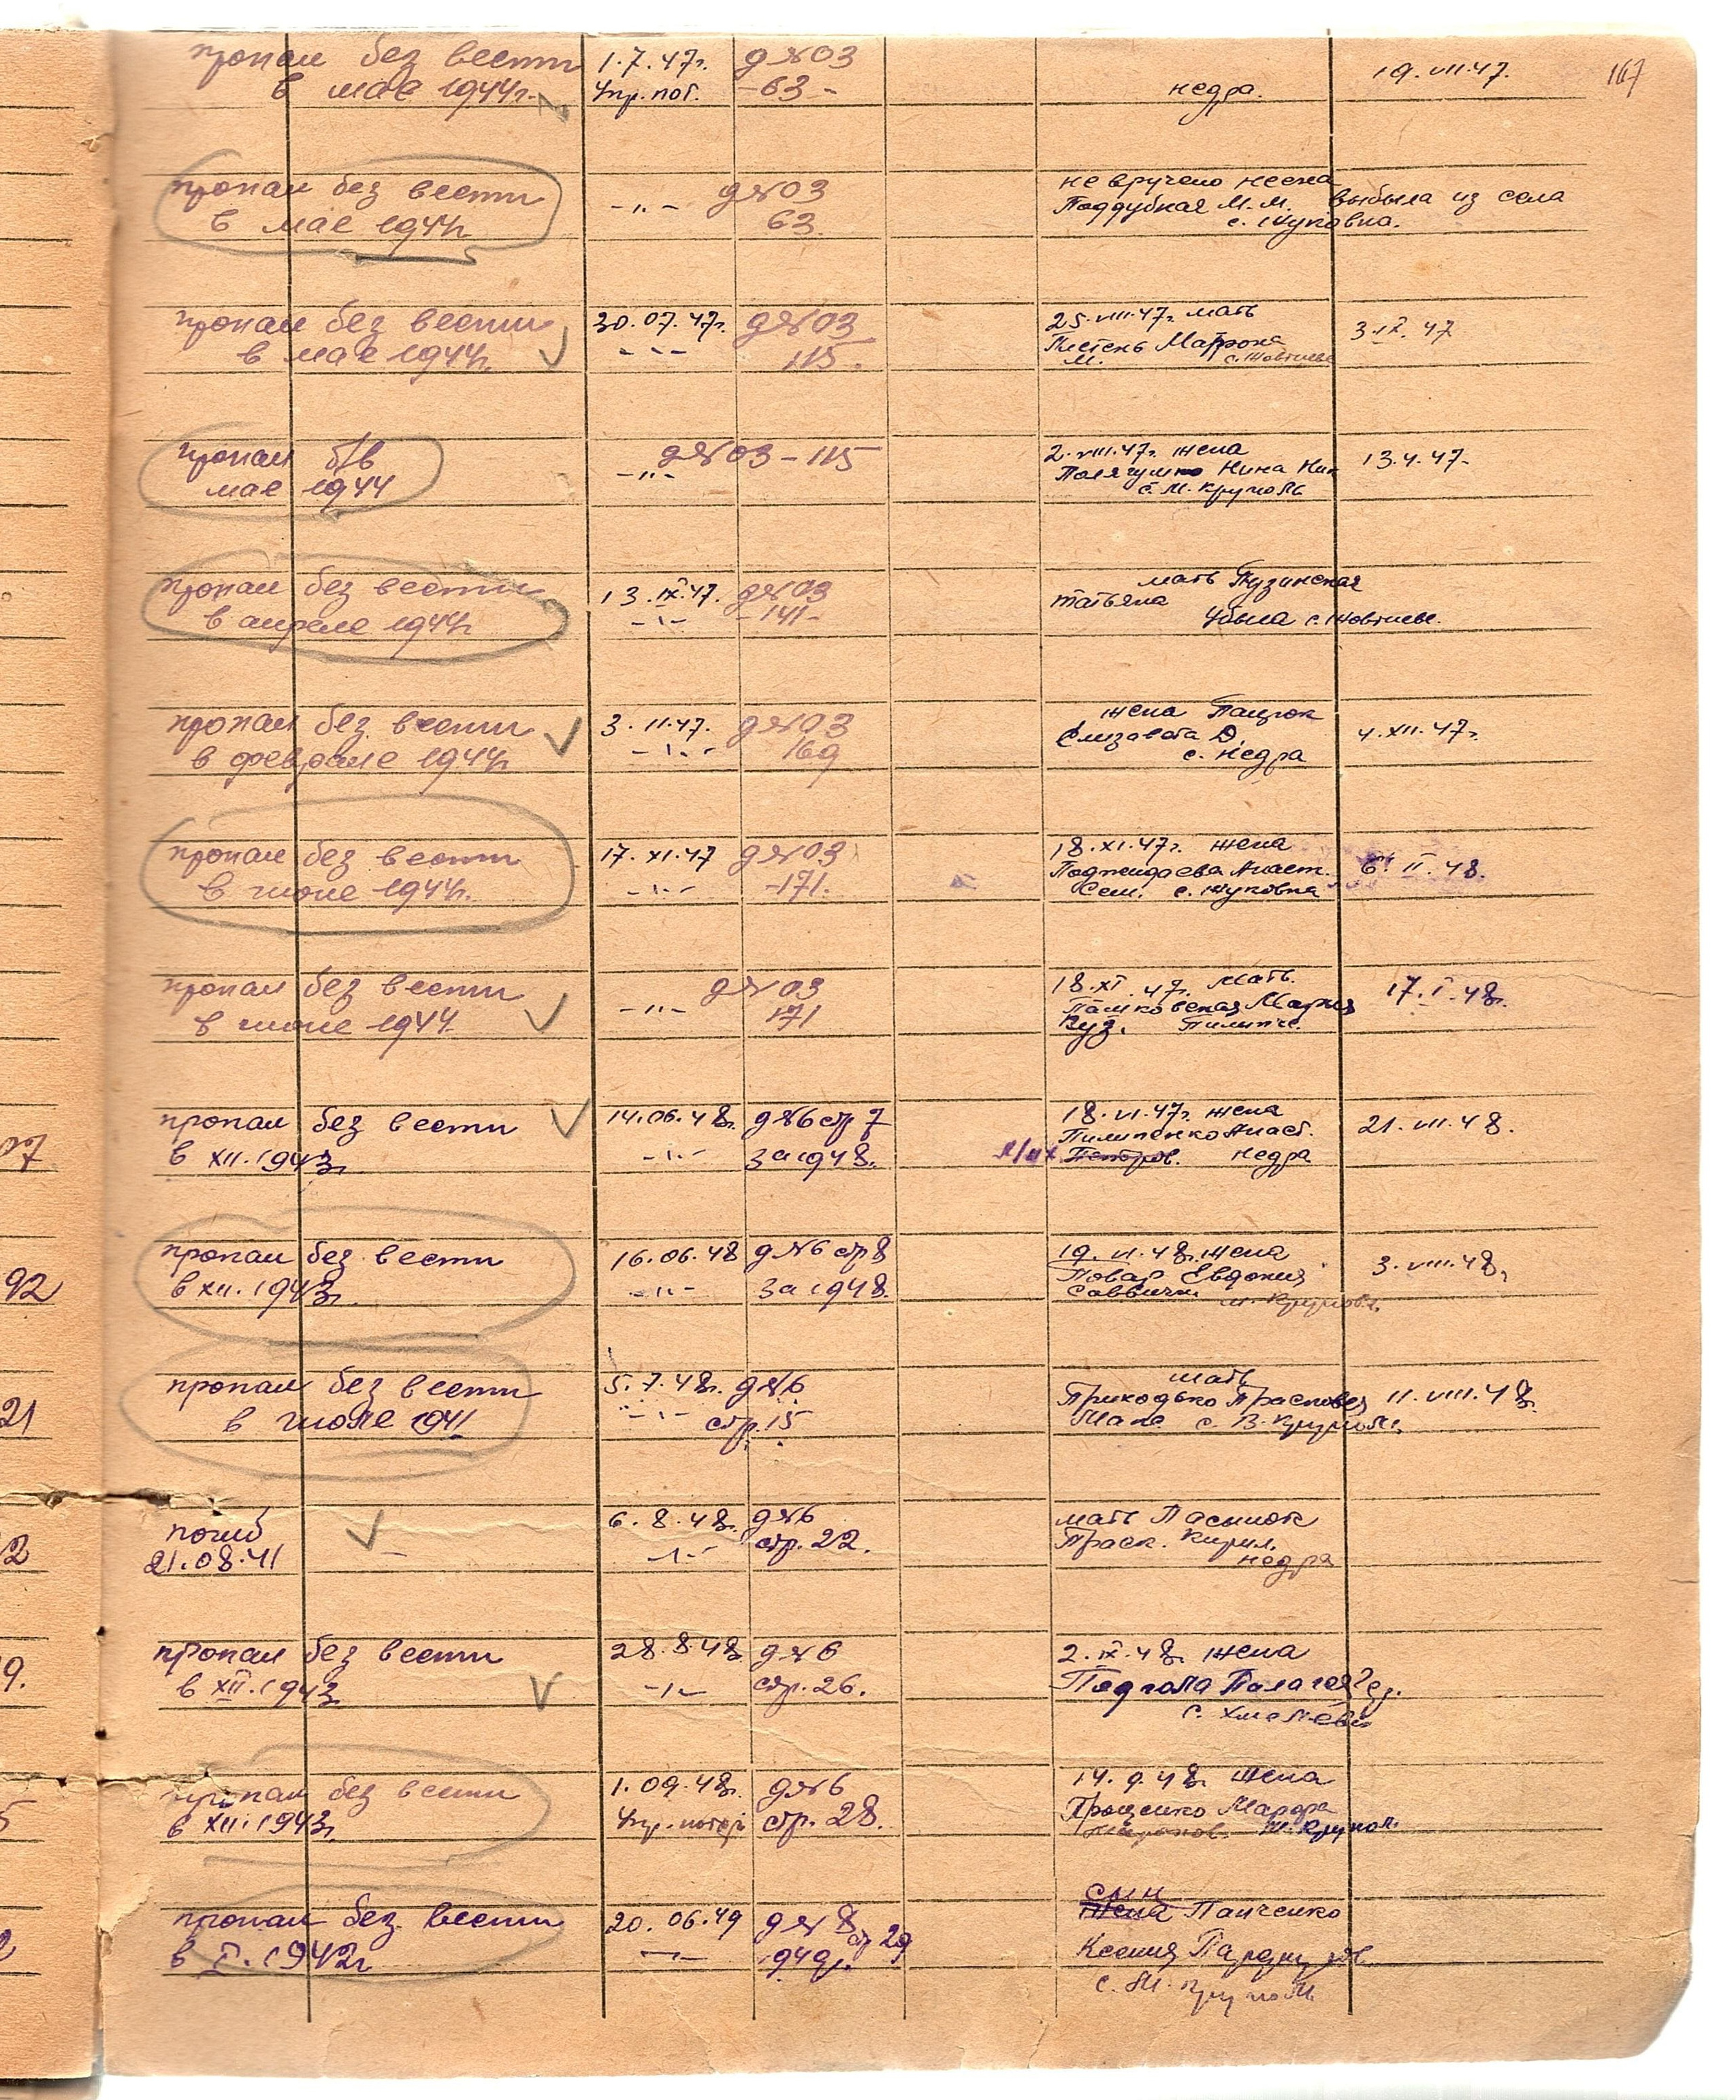 пропал без вести 1.7.47г. д №03 19.VII.47. 167
в мае 1944г. Упр.пот. -63- недра.
пропал без вести -"- д №03 не вручено
в мае 1944г 63. Поддубная М.М. выбыла из села
с. Жуковка.
пропал без вести 30.07.47г. д №03 25.VIII.47г. мать 3.IX.47
в мае 1944г. -"- 115. Матрона
М.
пропал б/в -"- д №03-115 2.VIII.47г. жена 13.4.47.
мае 1944 Нина Ник
с. М. Круполь
пропал без вести 13.IX.47. д №03 мать Пузинская
в апреле 1944г -"- -141- Татьяна
убыла с.
пропал без вести 3.11.47. д №03 жена Пацюк 4.XII.47г.
в феврале 1944г -"- 169 Елизавета Д.
с. Недра
пропал без вести 17.XI.47 д №03 18.XI.47г. жена 6. II.48.
в июне 1944г. -"- -171. Анаст.
Сем. с. Жуковка
пропал без вести -"- д №03 18.XI.47г. мать 17.I.48г.
в июне 1944. 171 Пашковская Мария
Куз.
пропал без вести 14.06.48г. д №6 стр 7 18.VI.47г. жена 21.VII.48.
в XII.1943г -"- за 1948. Пилипенко Анаст.
Петров. недра
пропал без вести 16.06.48 д №6 стр 8 19.VI.48г. жена 3.VIII.48г
в XII.1943г. -"- за 1948. Повар Евдокия
м. Круполь
пропал без вести 5.7.48г. д №6 мать
в июле 1941 -"- стр.15 Приходько Прасковья 11.VIII.48г.
с. В. Круполь
погиб 6.8.48г. д №6 мать Пасынок
21.08.41 -"- стр.22. Праск. Кирил.
недра
пропал без вести 28.8.48 д №6 2.IX.48г жена
в XII.1943г -"- стр.26.
пропал без вести 1.09.48г. д №6 14.9.48г жена
в XII.1943г Упр. потерь стр.28. Проценко
м. Крупол.
пропал без вести 20.06.49 д №8 стр 29 сын
в I.1942г 1949г. Панченко
Ксения
с. М. Круполь